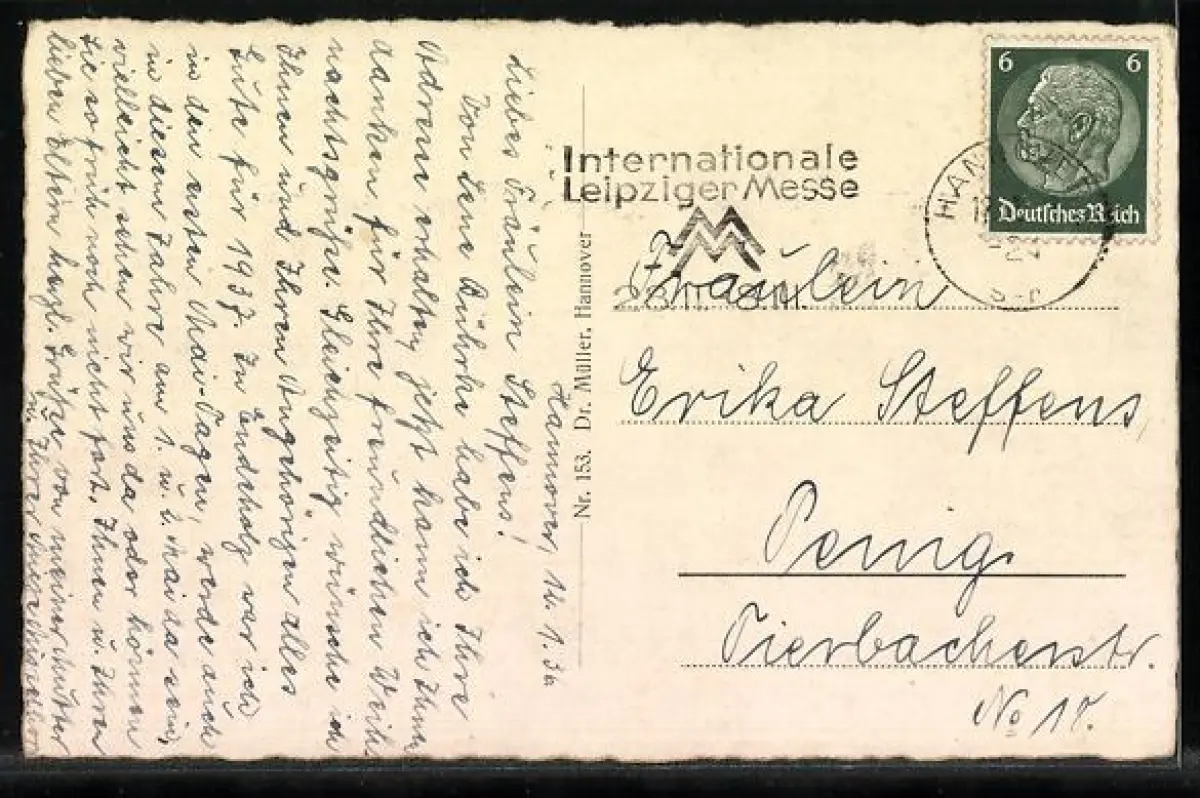 Hannover, 12. 1. 37
Liebes Fräulein Steffens!
Von Lene habe ich Ihre
Adresse erhalten, jetzt kann ich Ihnen
danken für Ihre freundlichen Weih-
nachtsgrüße. Gleichzeitig wünsche ich
Ihnen und Ihren Angehörigen alles
Gute für 1937. In war ich
in den ersten Mai-Tagen, werde auch
in diesem Jahre am 1. u. 2. Mai da sein,
vielleicht sehen wir uns da oder können
Sie so früh noch nicht fort. Ihnen u. Ihren
lieben Eltern herzl. Grüße, von meiner Mutter
u. Ihrer
Nr. 153. Dr. Müller, Hannover
Internationale
Leipziger Messe
MM
HAN
6 6
Deutsches Reich
Fräulein
Erika Steffens,
Penig
Tierbacherstr.
No 17.